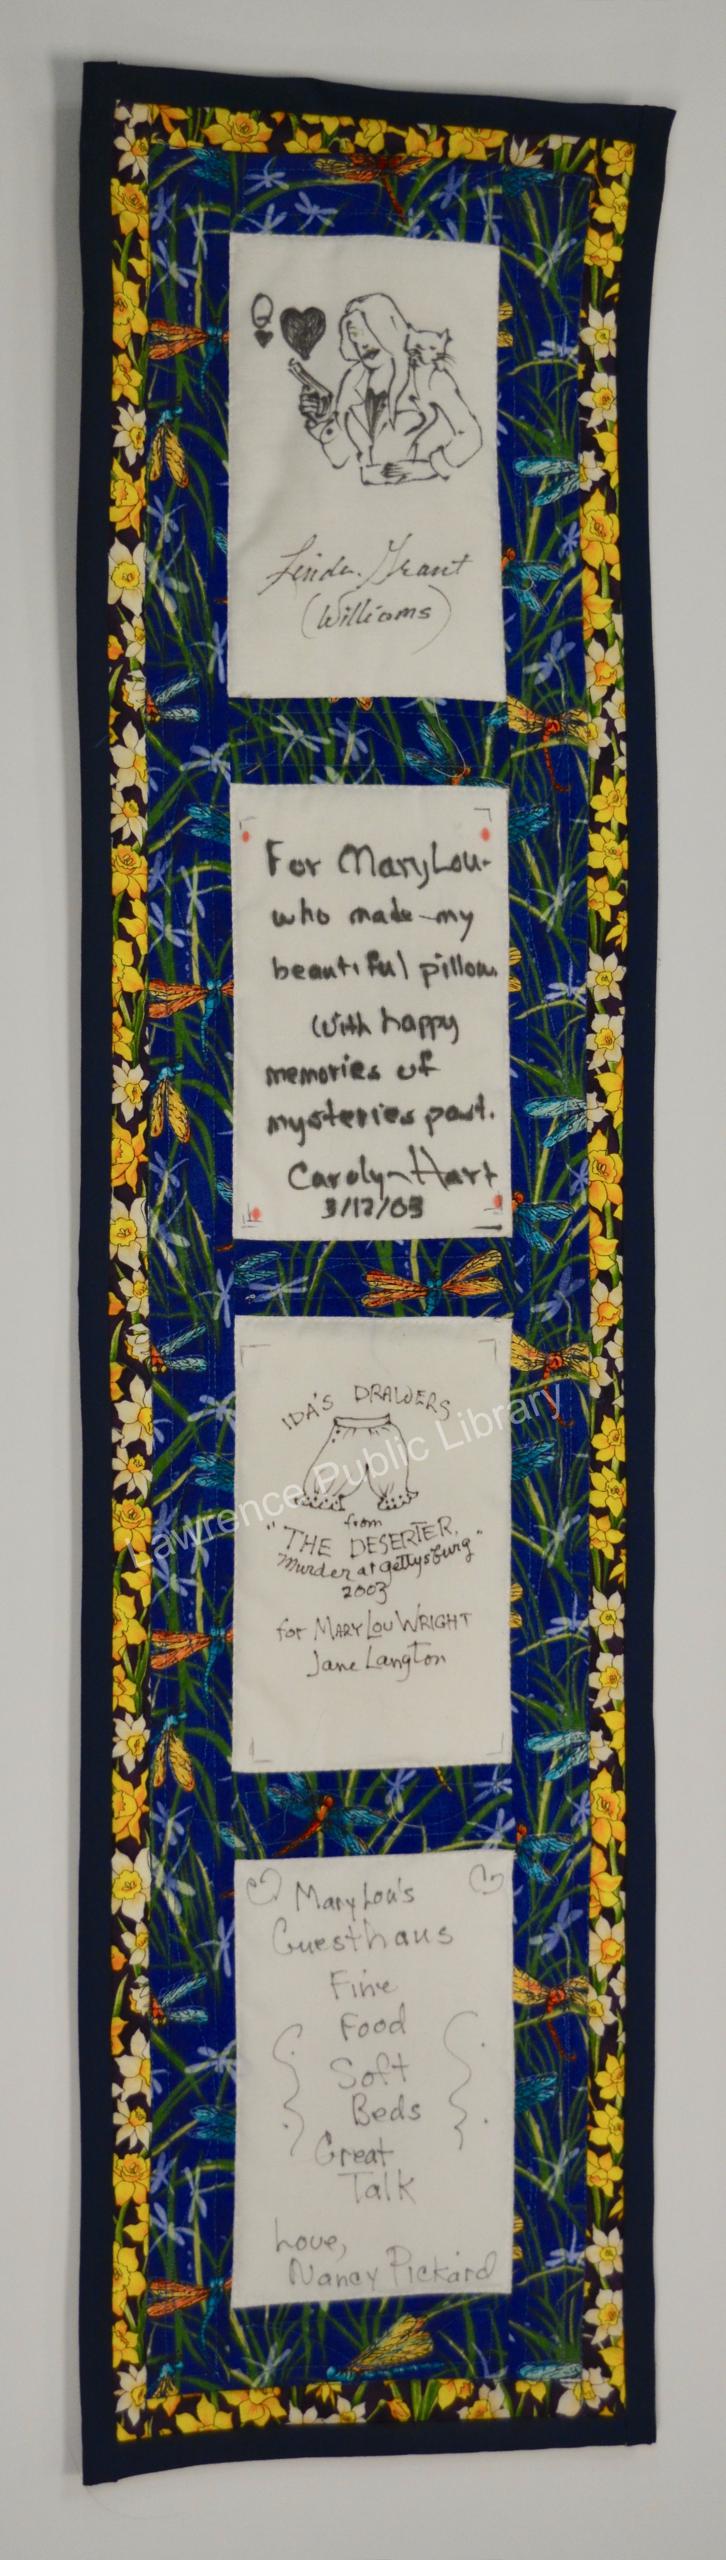 Q
Linda Grant
(Williams)
For MaryLou-
who made my
beautiful pillow.
With happy
memories of
mysteries past.
Carolyn Hart
3/12/03
IDA'S DRAWERS
from
"THE DESERTER,
Murder at Gettysburg"
2003
for MARY LOU WRIGHT
Jane Langton
Lawrence Public Library
MaryLou's
Guesthaus
Fine
Food
Soft
Beds
Great
Talk
Love,
Nancy Pickard